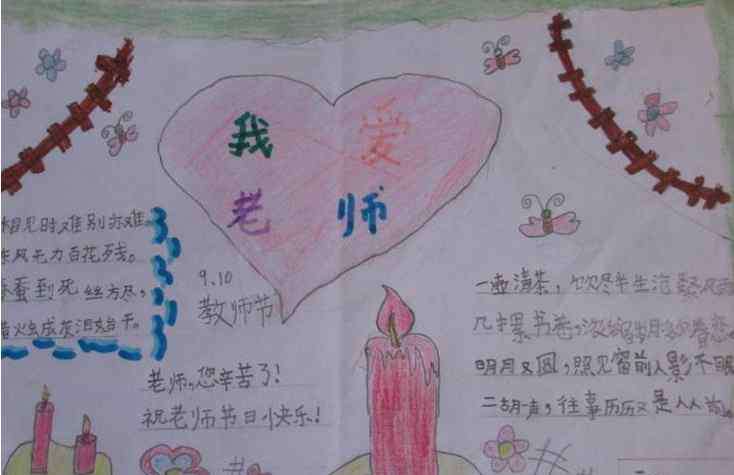 我 爱
老 师
相见时难别亦难
东风无力百花残。
春蚕到死丝方尽,
成灰泪始干。
9.10
教师节
老师,您辛苦了!
祝老师节日快乐!
一壶清茶,饮尽半生沧
几字累书卷,
明月又圆,照见窗前人影不眠
二胡声,往事历历又是人